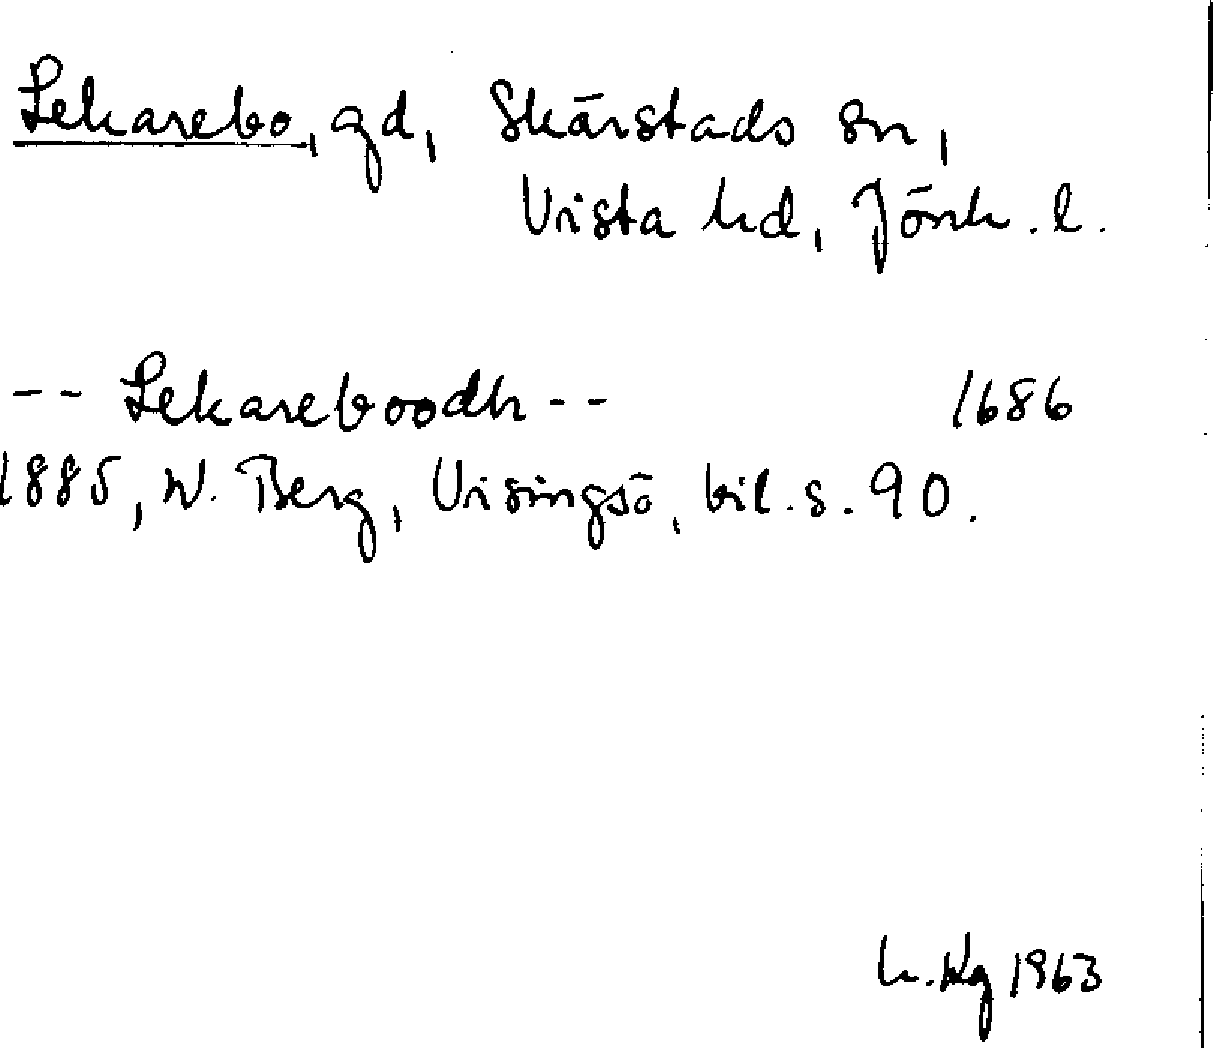 Lekarebo, gd, Skärstads sn,
Vista hd, Jönk. l.
-- Lekareboodh -- 1686
1885, W. Berg, Visingsö, bil. s. 90.
1963